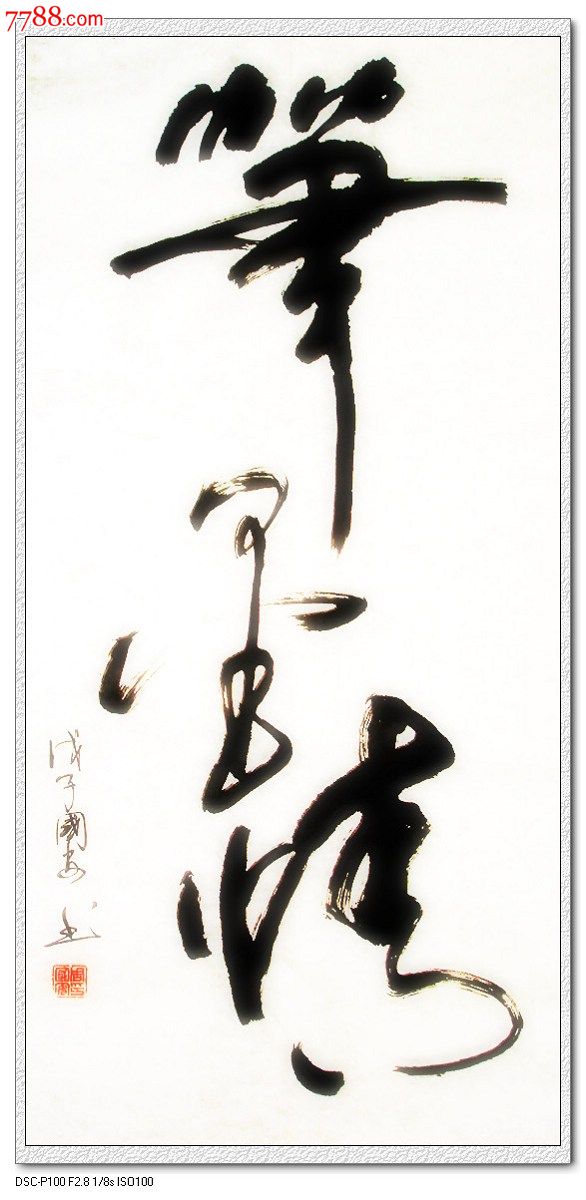 7788.com
筆墨情
戊子國安书
DSC-P100 F2.8 1/8s ISO100